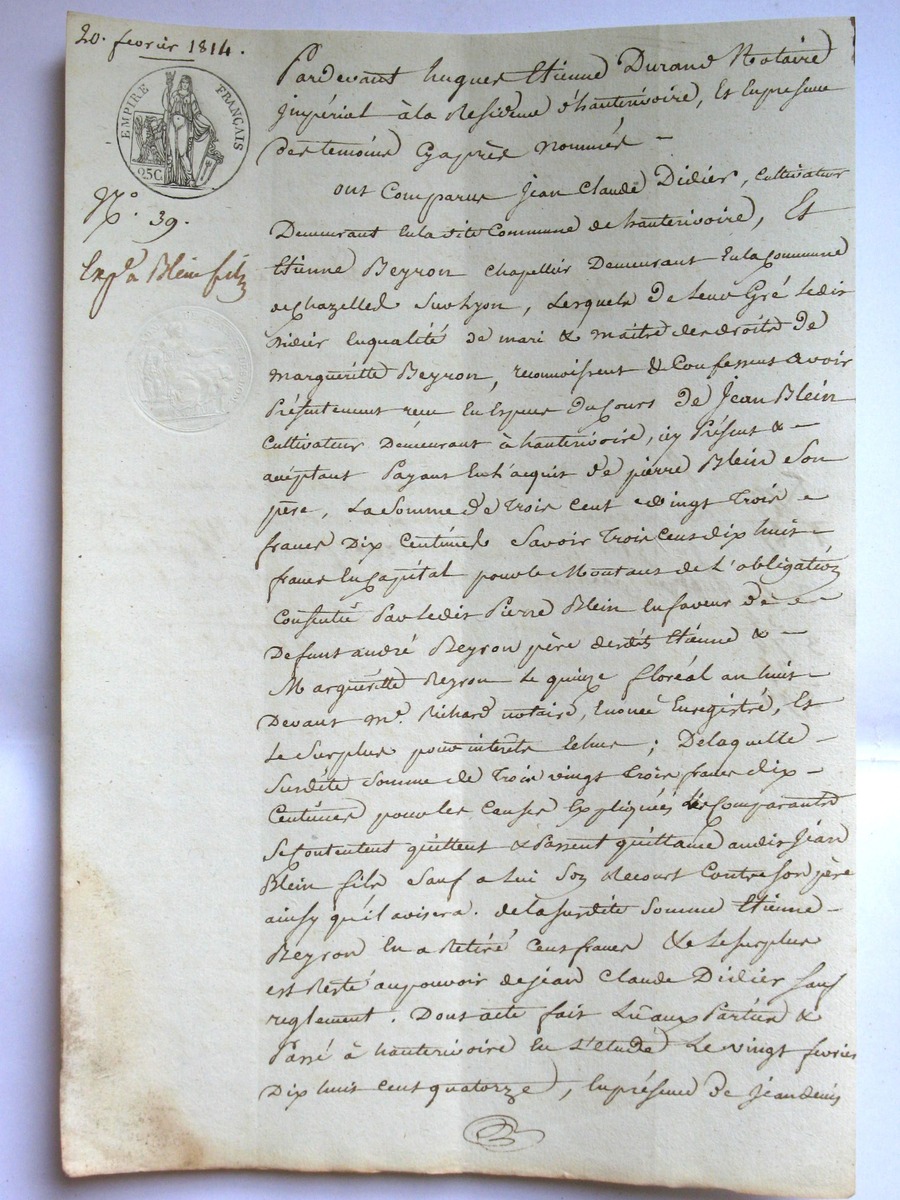 20. fevrier 1814.
EMPIRE FRANÇAIS
25C.
N.° 39.
Exp.é a Blein fils
Pardevant hugues Etienne Durand Notaire
jmpérial à la Residence d'hauterivoire, Et En presence
des temoins Cy après nommés —
ont Comparus Jean Claude Didier, Cultivateur
Demeurant En la dite Commune de hauterivoire, Et
Etienne Beyron chapellier Demeurant En la Commune
de Chazelles Sur Lyon, Lesquels De Leur Gré Ledit
Didier En qualité de mari & maitre des droits de
margueritte Beyron, reconnoissent & Confessent avoir
Présentement recu En Especes Du Cours De Jean Blein
Cultivateur Demeurant à hauterivoire, icy Présent & —
acceptant Payant En L'acquit de pierre Blein Son
père, La Somme De trois cent vingt trois
francs Dix Centimes Savoir trois Cent dix huit
francs En Capital pour le Montant de L'obligation
Consentie Par Ledit Pierre Blein En faveur De
Defunt andré Beyron père desdits Etienne & —
Margueritte Beyron Le quinze floréal an huit
Devant m.e Richard notaire, Enonée Enregistré, Et
Le Surplus pour interets Echus ; De laquelle —
Surdite Somme de trois vingt trois francs dix —
Centimes pour les Causes Expliquées Les Comparants
Se Contentent quittent & Passent quittance audit Jean
Blein fils Sauf a Lui Son Recourt Contre Son père
ainsy qu'il avisera. de la Surdite Somme Etienne —
Beyron En a Retiré Cent francs & Le Surplus
est Resté au pouvoir de jean Claude Didier Sauf
reglement. Dont acte fait Lu aux Parties &
Passé à hauterivoire En L'etude Le vingt fevrier
Dix huit Cent quatorze, En présence de Jean denis